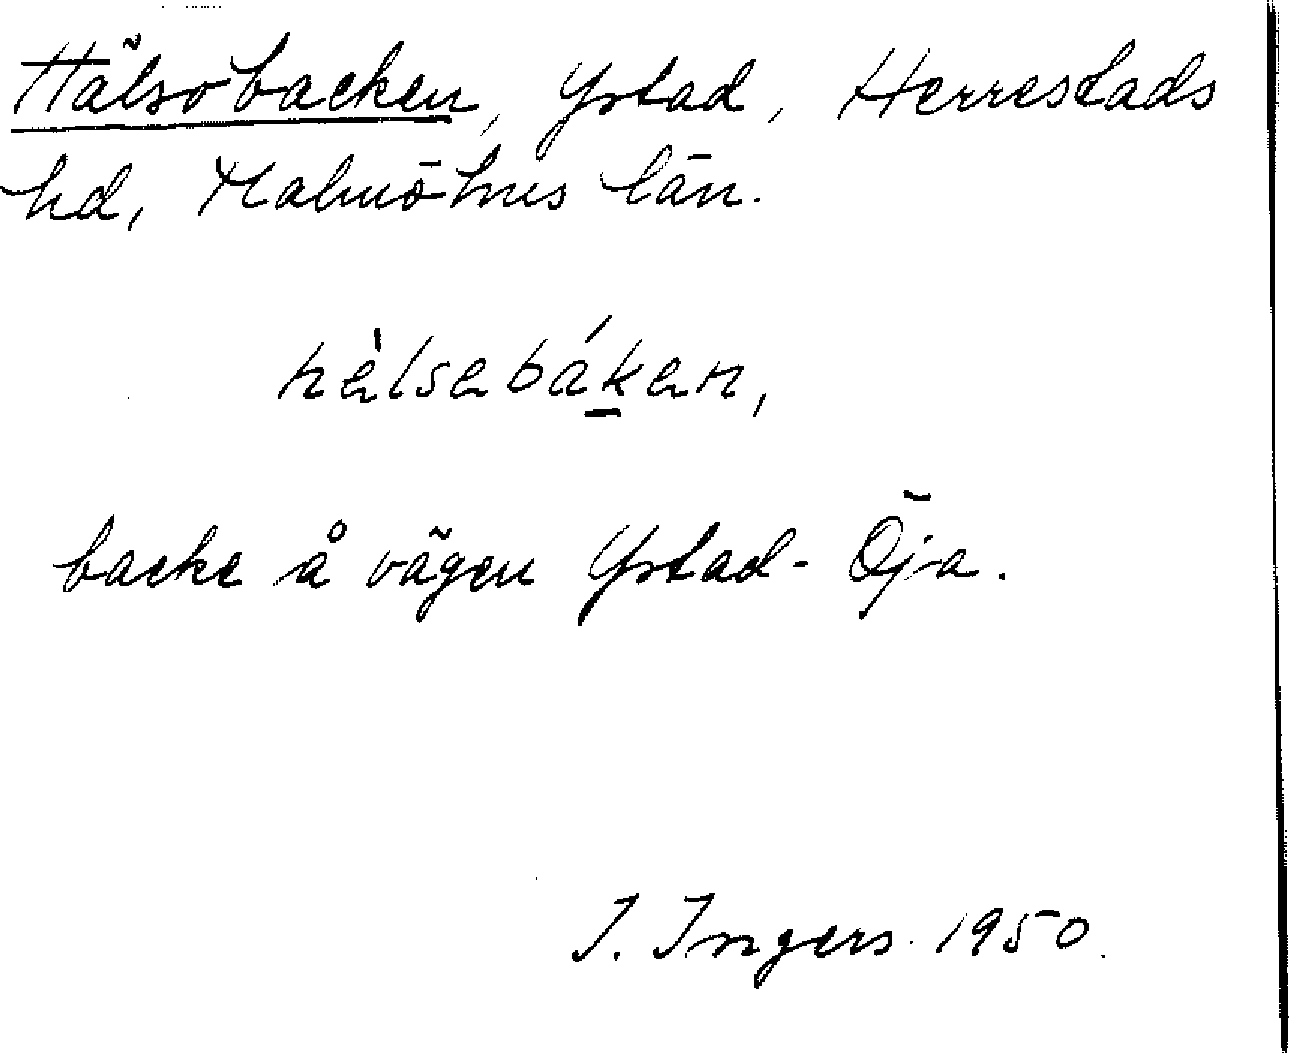 Hälsobacken, Ystad, Herrestads
hd, Malmöhus län.
hèlsebák̲en,
backe å vägen Ystad - Öja.
I. Ingers 1950.